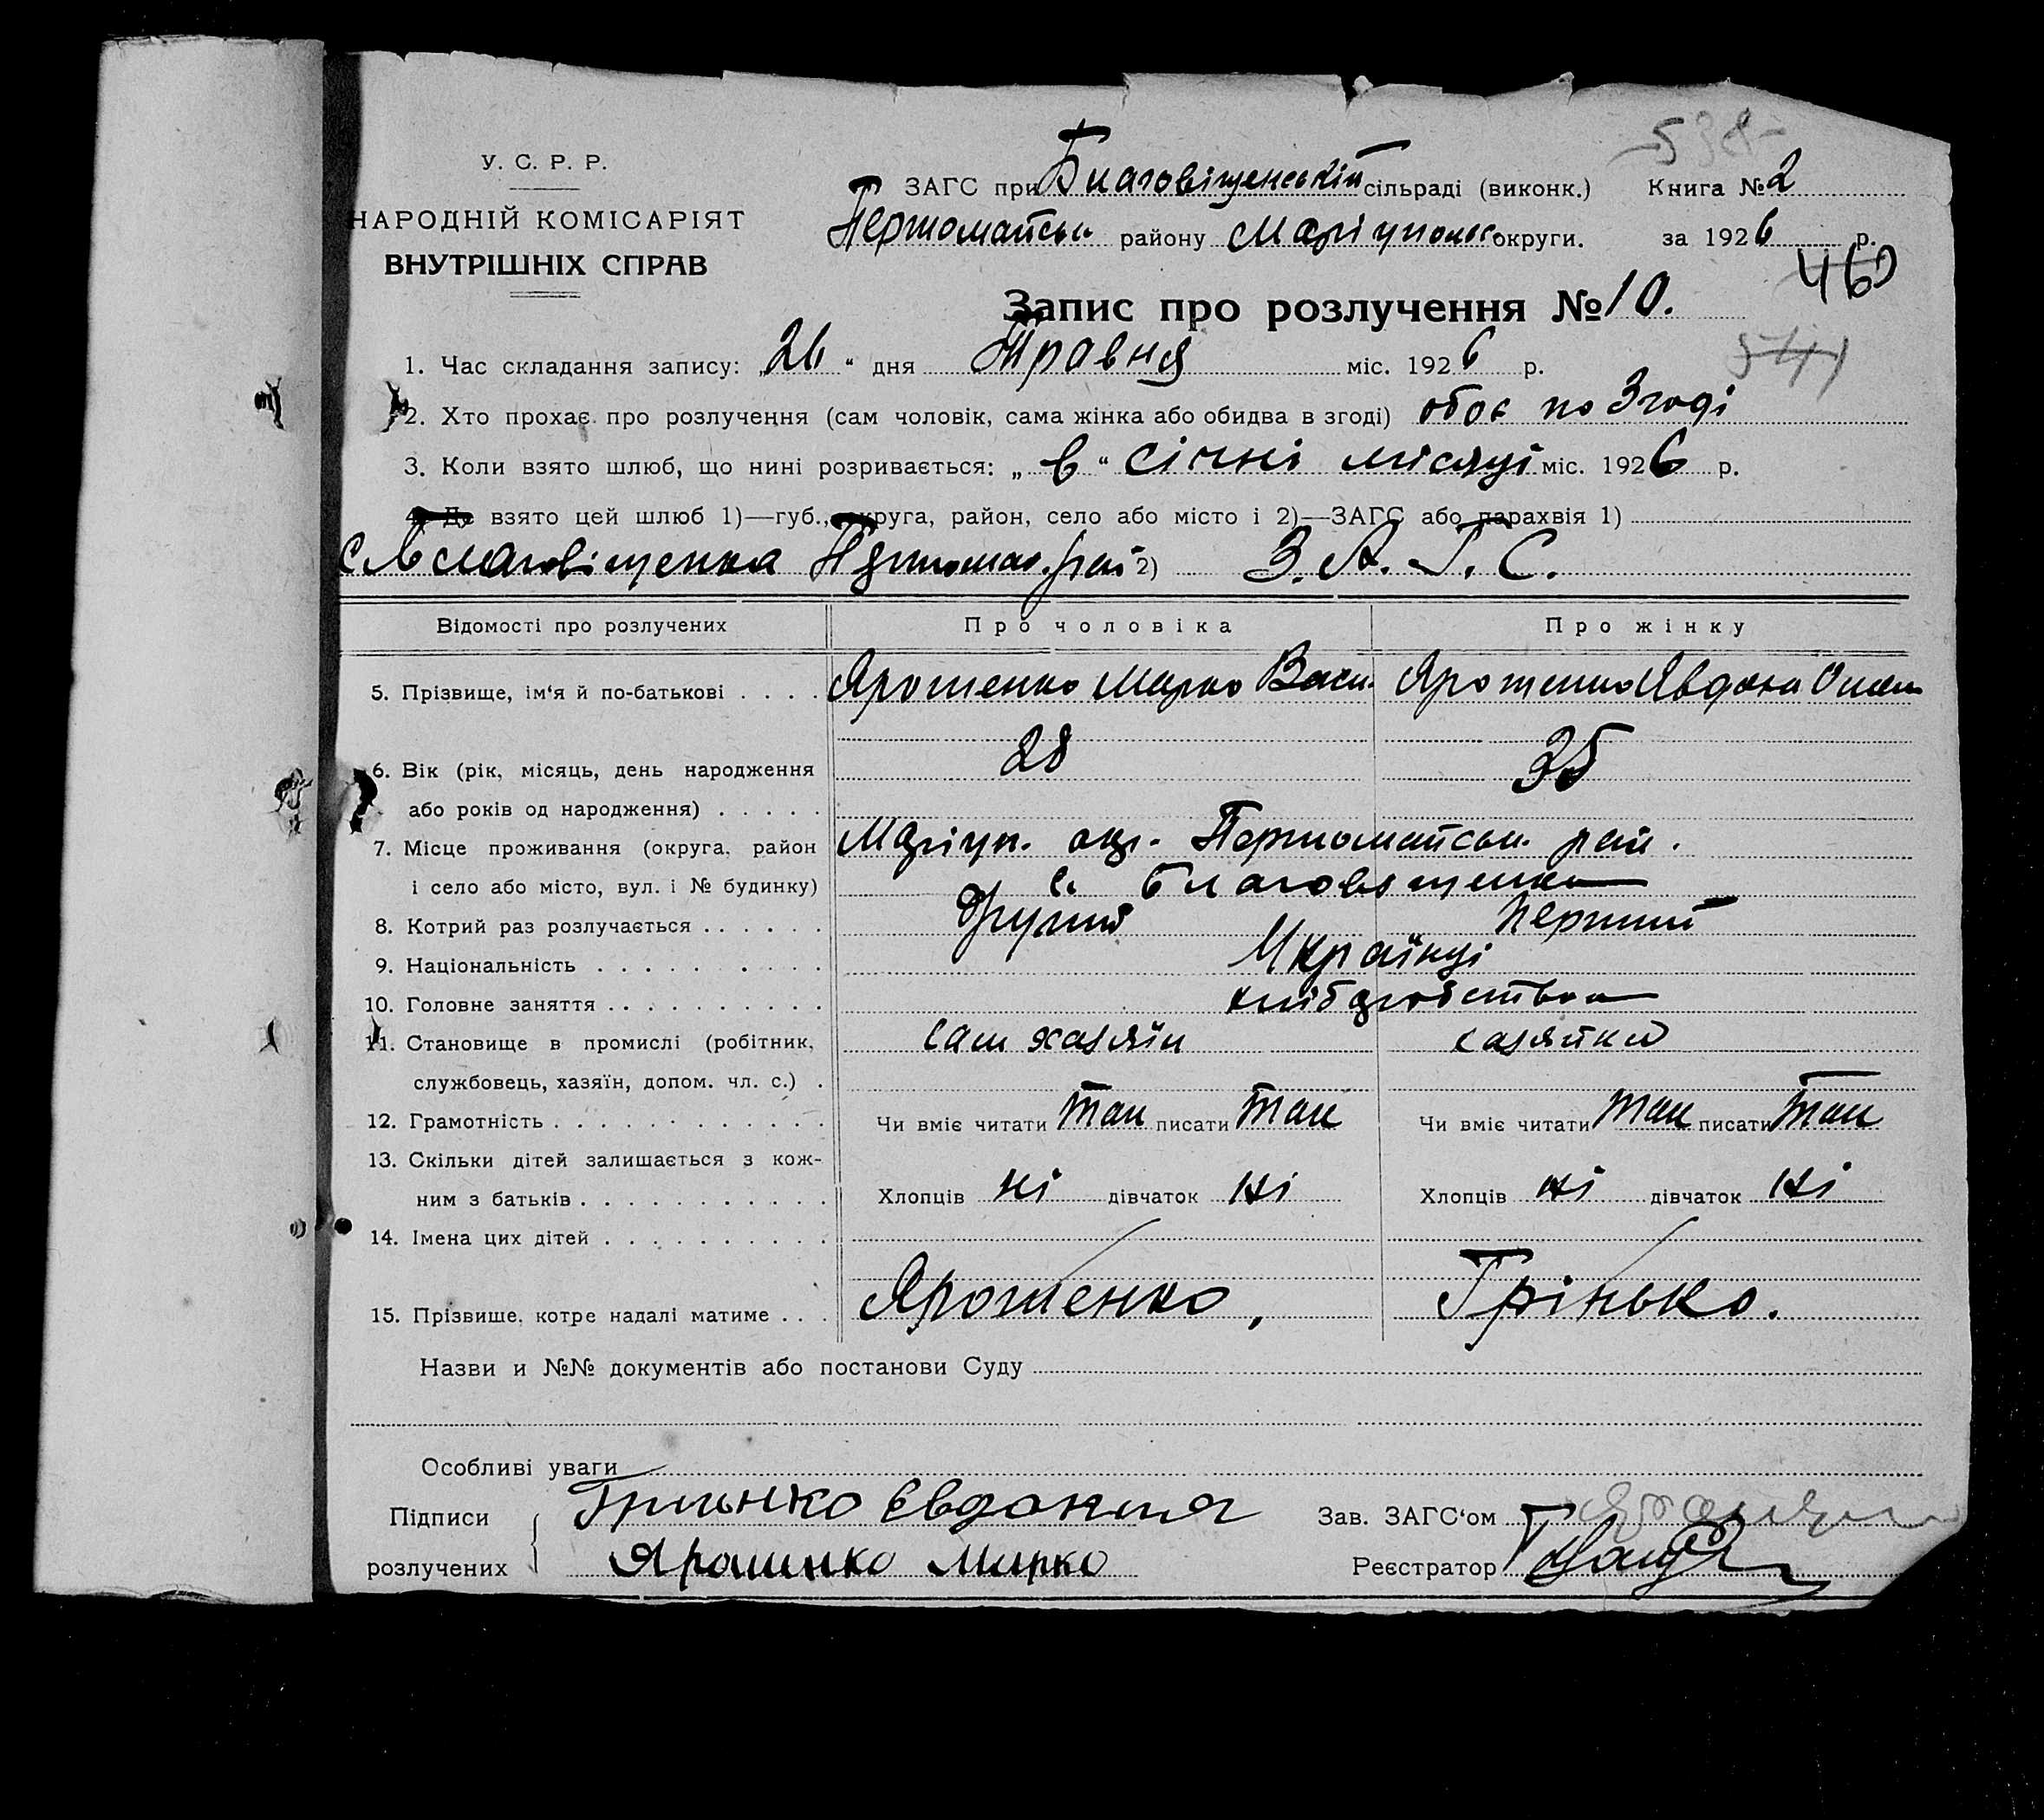 538
У. С. Р. Р.
НАРОДНІЙ КОМІСАРІЯТ
ВНУТРІШНІХ СПРАВ
ЗАГС при Благовіщенській сільраді (виконк.) Книга № 2
Першомайськ району Маріупольс округи. за 1926 р.
460
Запис про розлучення № 10.
1. Час складання запису: „26“ дня Травня міс. 1926 р.
2. Хто прохає про розлучення (сам чоловік, сама жінка або обидва в згоді) обоє по Згоді
3. Коли взято шлюб, що нині розривається: „в“ січні місяці міс. 1926 р.
4. Де взято цей шлюб 1)—губ., округа, район, село або місто і 2)—ЗАГС або парахвія 1)
с Благовіщенка Першомай. рай 2) З. А. Г. С.
Відомості про розлучених Про чоловіка Про жінку
5. Прізвище, ім‘я й по-батькові . . . . Ярошенко Марко Васи. Ярошенко Явдоха
6. Вік (рік, місяць, день народження 28 35
або років од народження) . . . . .
7. Місце проживання (округа, район Маріуп. окр. Першомайськ. рай.
і село або місто, вул. і № будинку) с. Благовященка
8. Котрий раз розлучається . . . . . . другий перший
9. Національність . . . . . . . . . Українці
10. Головне заняття . . . . . . . . . . хліборобство
11. Становище в промислі (робітник, сам хазяїн хазяйка
службовець, хазяїн, допом. чл. с.) .
12. Грамотність . . . . . . . . . . . . Чи вміє читати так писати так Чи вміє читати так писати так
13. Скільки дітей залишається з кож-
ним з батьків . . . . . . . . . . . Хлопців ні дівчаток ні Хлопців ні дівчаток ні
14. Імена цих дітей . . . . . . . . . .
15. Прізвише, котре надалі матиме . . . Ярошенко, Грінько.
Назви и №№ документів або постанови Суду
Особливі уваги
Підписи Гринько Євдокия Зав. ЗАГС‘ом
розлучених Ярошинко Марко Реєстратор